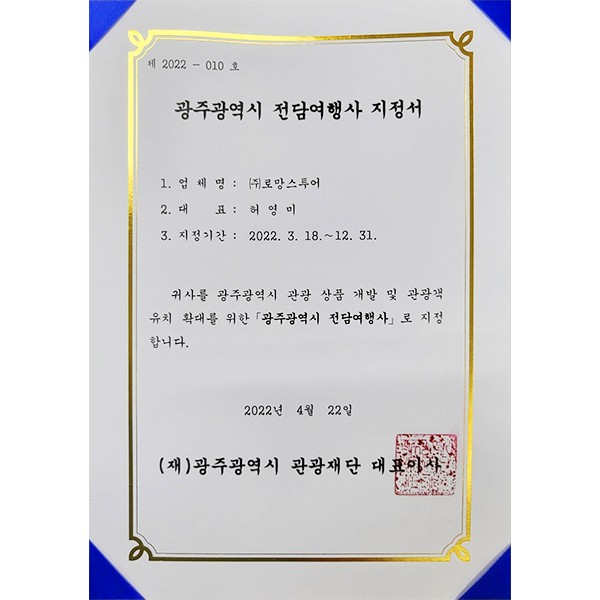 제 2022 - 010 호
광주광역시 전담여행사 지정서
1. 업 체 명 : ㈜로망스투어
2. 대 표 : 허 영 미
3. 지정기간 : 2022. 3. 18.~12. 31.
귀사를 광주광역시 관광 상품 개발 및 관광객
유치 확대를 위한 「광주광역시 전담여행사」로 지정
합니다.
2022년 4월 22일
(재)광주광역시 관광재단 대표이사